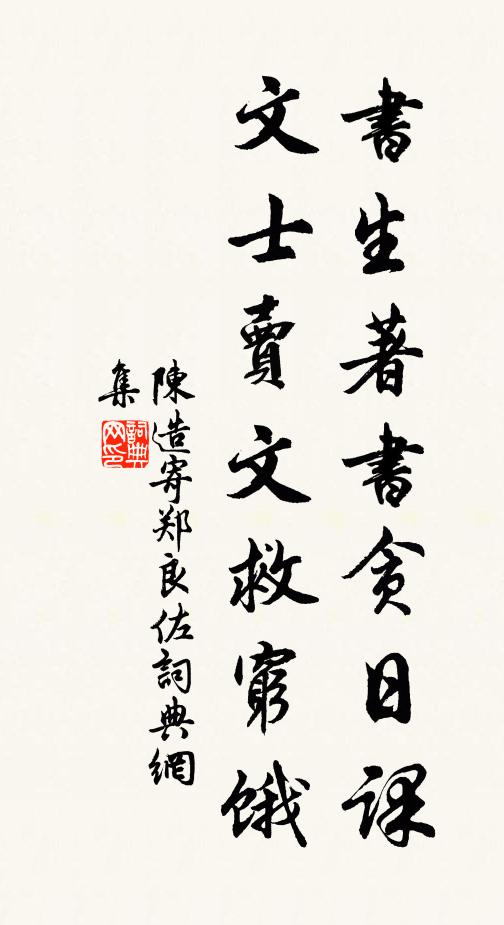 書生著書貪日課
文士賣文救窮餓
陳造寄郑良佐詞典網
集
詞典
网印